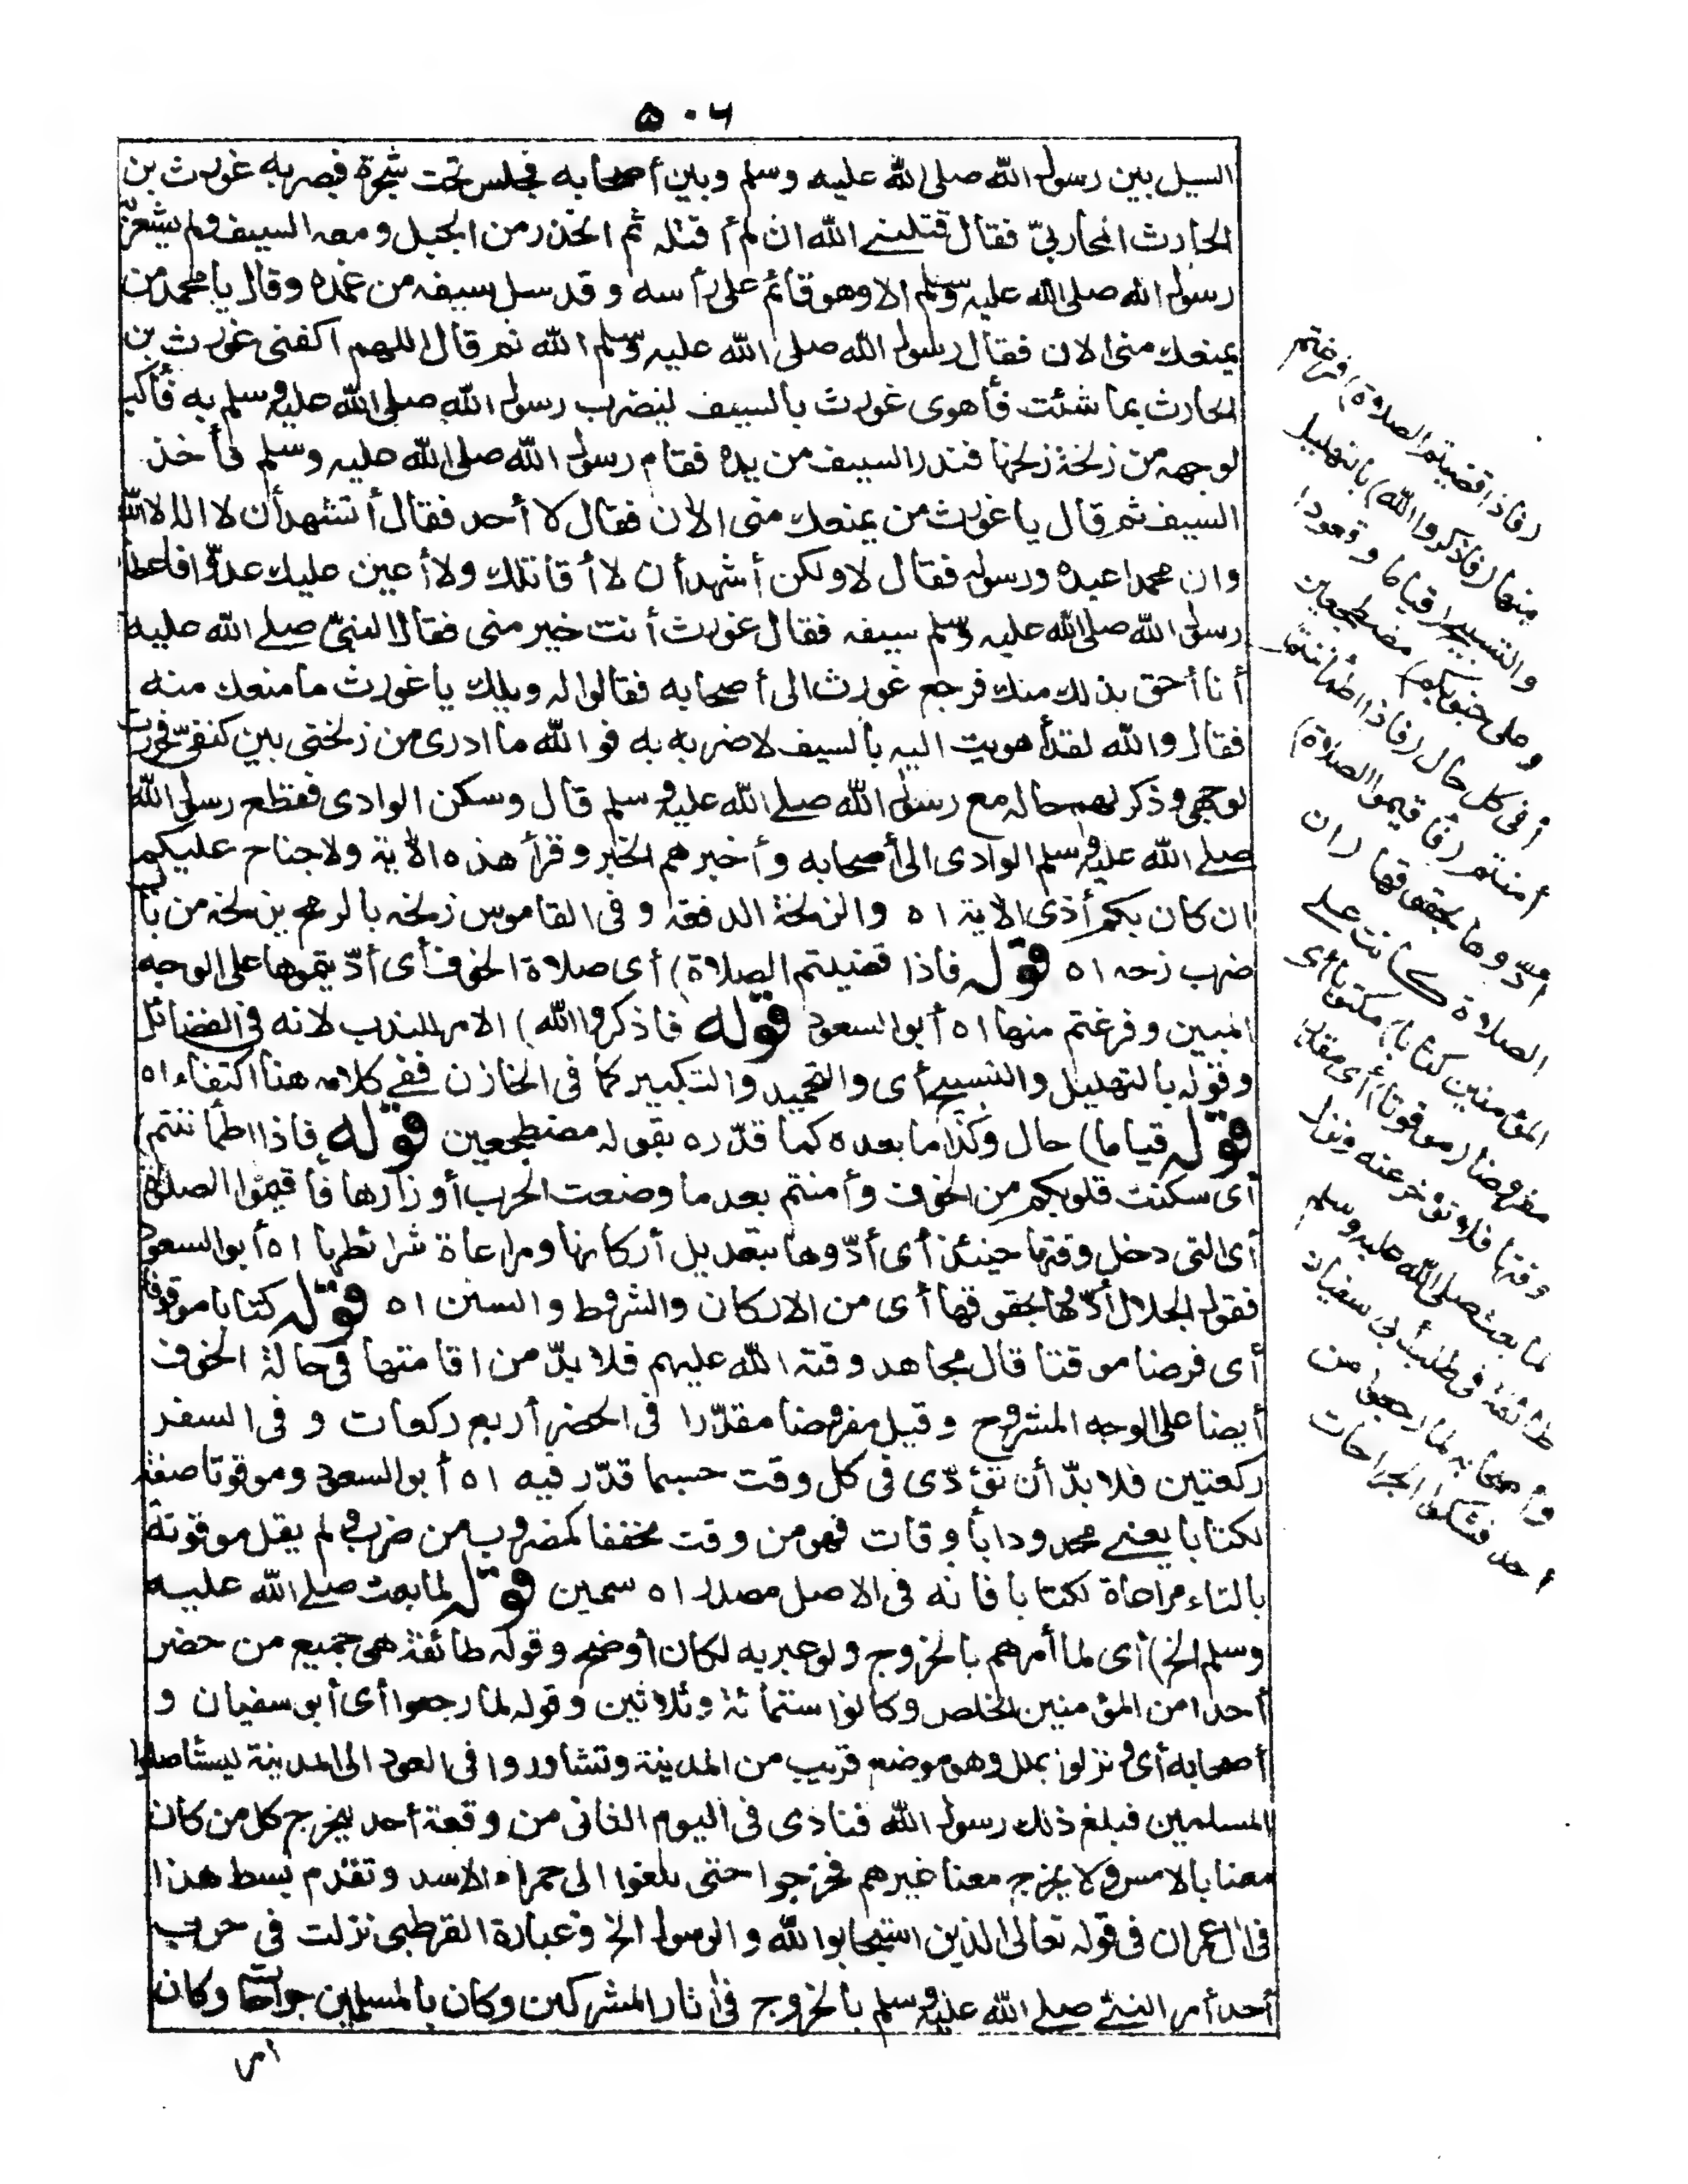 ٥٠٦
السيل بين رسول الله صلى الله عليه وسلم وبين أصحابه فجلس تحت شجرة فبصر به غورث بن
الحارث المحاربيّ فقال قتلني الله ان لم أقتله ثم انحدر من الجبل ومعه السيف ولم يشعر به
رسول الله صلى الله عليه وسلم الا وهو قائم على رأسه وقد سل سيفه من غمده وقال يا محمد من
يمنعك منى الان فقال رسول الله صلى الله عليه وسلم الله ثم قال اللهم اكفنى غورث بن
الحارث بما شئت فأهوى غورث بالسيف ليضرب رسول الله صلى الله عليه وسلم به فأكب
لوجهه من زلخة زلخها فندر السيف من يده فقام رسول الله صلى الله عليه وسلم فأخذ
السيف ثم قال يا غورث من يمنعك منى الأن فقال لا أحد فقال أتشهد أن لا اله الا الله
وان محمدا عبده ورسوله فقال لا ولكن أشهد أن لا أقاتلك ولا أعين عليك عدوّا فاعطاه
رسول الله صلى الله عليه وسلم سيفه فقال غورث أنت خير منى فقال النبيّ صلى الله عليه
أنا أحق بذلك منك فرجع غورث الى أصحابه فقالوا له ويلك يا غورث ما منعك منه
فقال والله لقد أهويت اليه بالسيف لاضربه به فو الله ما ادرى من زلختى بين كتفيّ فخررت
لوجهى وذكر لهم حاله مع رسول الله صلى الله عليه وسلم قال وسكن الوادى فقطع رسول الله
صلى الله عليه وسلم الوادى الى أصحابه وأخبرهم الخبر وقرأ هذه الأية ولا جناح عليكم
ان كان بكم أذى الاية اه والزلخة الدفعة وفى القاموس زلخه بالرمح يزلخه من باب
ضرب زحه اه قوله فاذا قضيتم الصلاة) أى صلاة الخوف أى أدّيتموها على الوجه
المبين وفرغتم منها اه أبو السعود قوله فاذكروا الله) الامر للندب لانه فى الفضائل
وقوله بالتهليل والتسبيح أى والتحميد والتكبير كما فى الخازن ففى كلامه هنا اكتفاء اه
قوله قياما) حال وكذا ما بعده كما قدّره بقوله مضطجعين قوله فاذا اطمأننتم)
أى سكنت قلوبكم من الخوف وأمنتم بعد ما وضعت الحرب أوزارها فأقيموا الصلاة
أى التى دخل وقتها حينئذ أى أدّوها بتعديل أركانها ومراعاة شرائطها اه أبو السعود
فقول الجلال أدّوها بحقوقها أى من الاركان والشروط والسنن اه قوله كتابا موقوتا
أى فرضا موقتا قال مجاهد وقته الله عليهم فلا بدّ من اقامتها فى حالة الخوف
أيضا على الوجه المشروح وقيل مفروضا مقدّرا فى الحضر أربع ركعات وفى السفر
ركعتين فلا بدّ أن تؤدّى فى كل وقت حسبما قدّر فيه اه أبو السعود وموقوتا صفة
لكتابا يعنى محدودا بأوقات فهو من وقت مخففا كمضروب من ضرب ولم يقل موقوتة
بالتاء مراعاة لكتابا فانه فى الاصل مصدر اه سمين قوله لما بعث صلى الله عليه
وسلم الخ) أى لما أمرهم بالخروج ولو عبر به لكان أوضح وقوله طائفة هى جميع من حضر
أحدا من المؤمنين الخلص وكانوا ستمائة وثلاثين وقوله لما رجعوا أى أبو سفيان و
أصحابه أى ونزلوا بملل وهو موضع قريب من المدينة وتشاوروا فى العود الى المدينة ليستأصلوا
المسلمين فبلغ ذلك رسول الله فنادى فى اليوم الثانى من وقعة أحد ليخرج كل من كان
معنا بالامس ولا يخرج معنا غيرهم فخرجوا حتى بلغوا الى حمراء الاسد وتقدم بسط هذا
فى ال عمران فى قوله تعالى الذين استجابوا لله والرسول الخ وعبارة القرطبى نزلت فى حرب
أحد أمر النبى صلى الله عليه وسلم بالخروج فى أثار المشركين وكان بالمسلمين جراحات وكان
(فاذا قضيتم الصلاة) فرغتم
منها (فاذكروا الله) بالتهليل
والتسبيح (قياما وقعودا
وعلى جنوبكم) مضطجعين
أى فى كل حال (فاذا اطمأننتم)
أمنتم (فأقيموا الصلاة)
أدّوها بحقوقها (ان
الصلاة كانت على
المؤمنين كتابا) مكتوبا أى
مفروضا (موقوتا) أى مقدرا
وقتها فلا تؤخر عنه ونزل
لما بعث صلى الله عليه وسلم
طائفة فى طلب أبى سفيان
وأصحابه لما رجعوا من
أحد فشكوا الجراحات